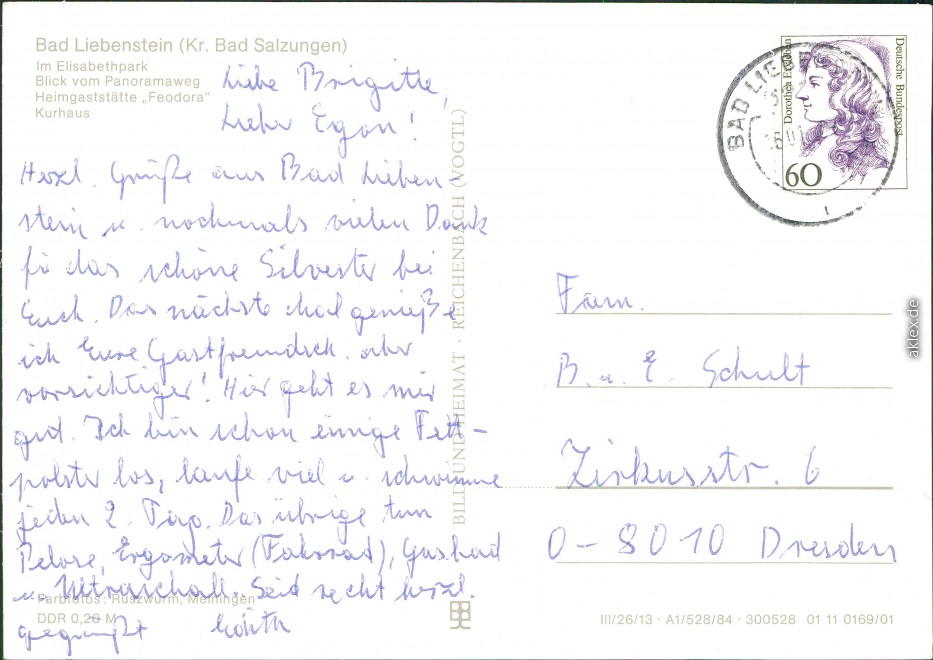 Bad Liebenstein (Kr. Bad Salzungen)
Im Elisabethpark
Blick vom Panoramaweg
Heimgaststätte „Feodora"
Kurhaus
Liebe Brigitte,
Lieber Egon!
Herzl. Grüße aus Bad Lieben-
stein u. nochmals vielen Dank
für das schöne Silvester bei
Euch. Das nächste Mal genieße
ich Eure Gastfreundsch. aber
vorsichtiger! Hier geht es mir
gut. Ich bin schon einige Fett-
polster los, laufe viel u. schwimme
jeden 2. Tag. Das übrige tun
Pelose, Ergometer (Fahrrad), Gasbad
u. Ultraschall. Seid recht herzl.
gegrüßt
Farbfotos: Ruszwurm, Meiningen
DDR 0,20 M
BILD UND HEIMAT · REICHENBACH (VOGTL)
BAD LIEBE
Deutsche Bundespost
Dorothea
60
Fam.
B. u. E. Schult
Zirkusstr. 6
O-8010 Dresden
III/26/13 · A1/528/84 · 300528 01 11 0169/01
aklex.de